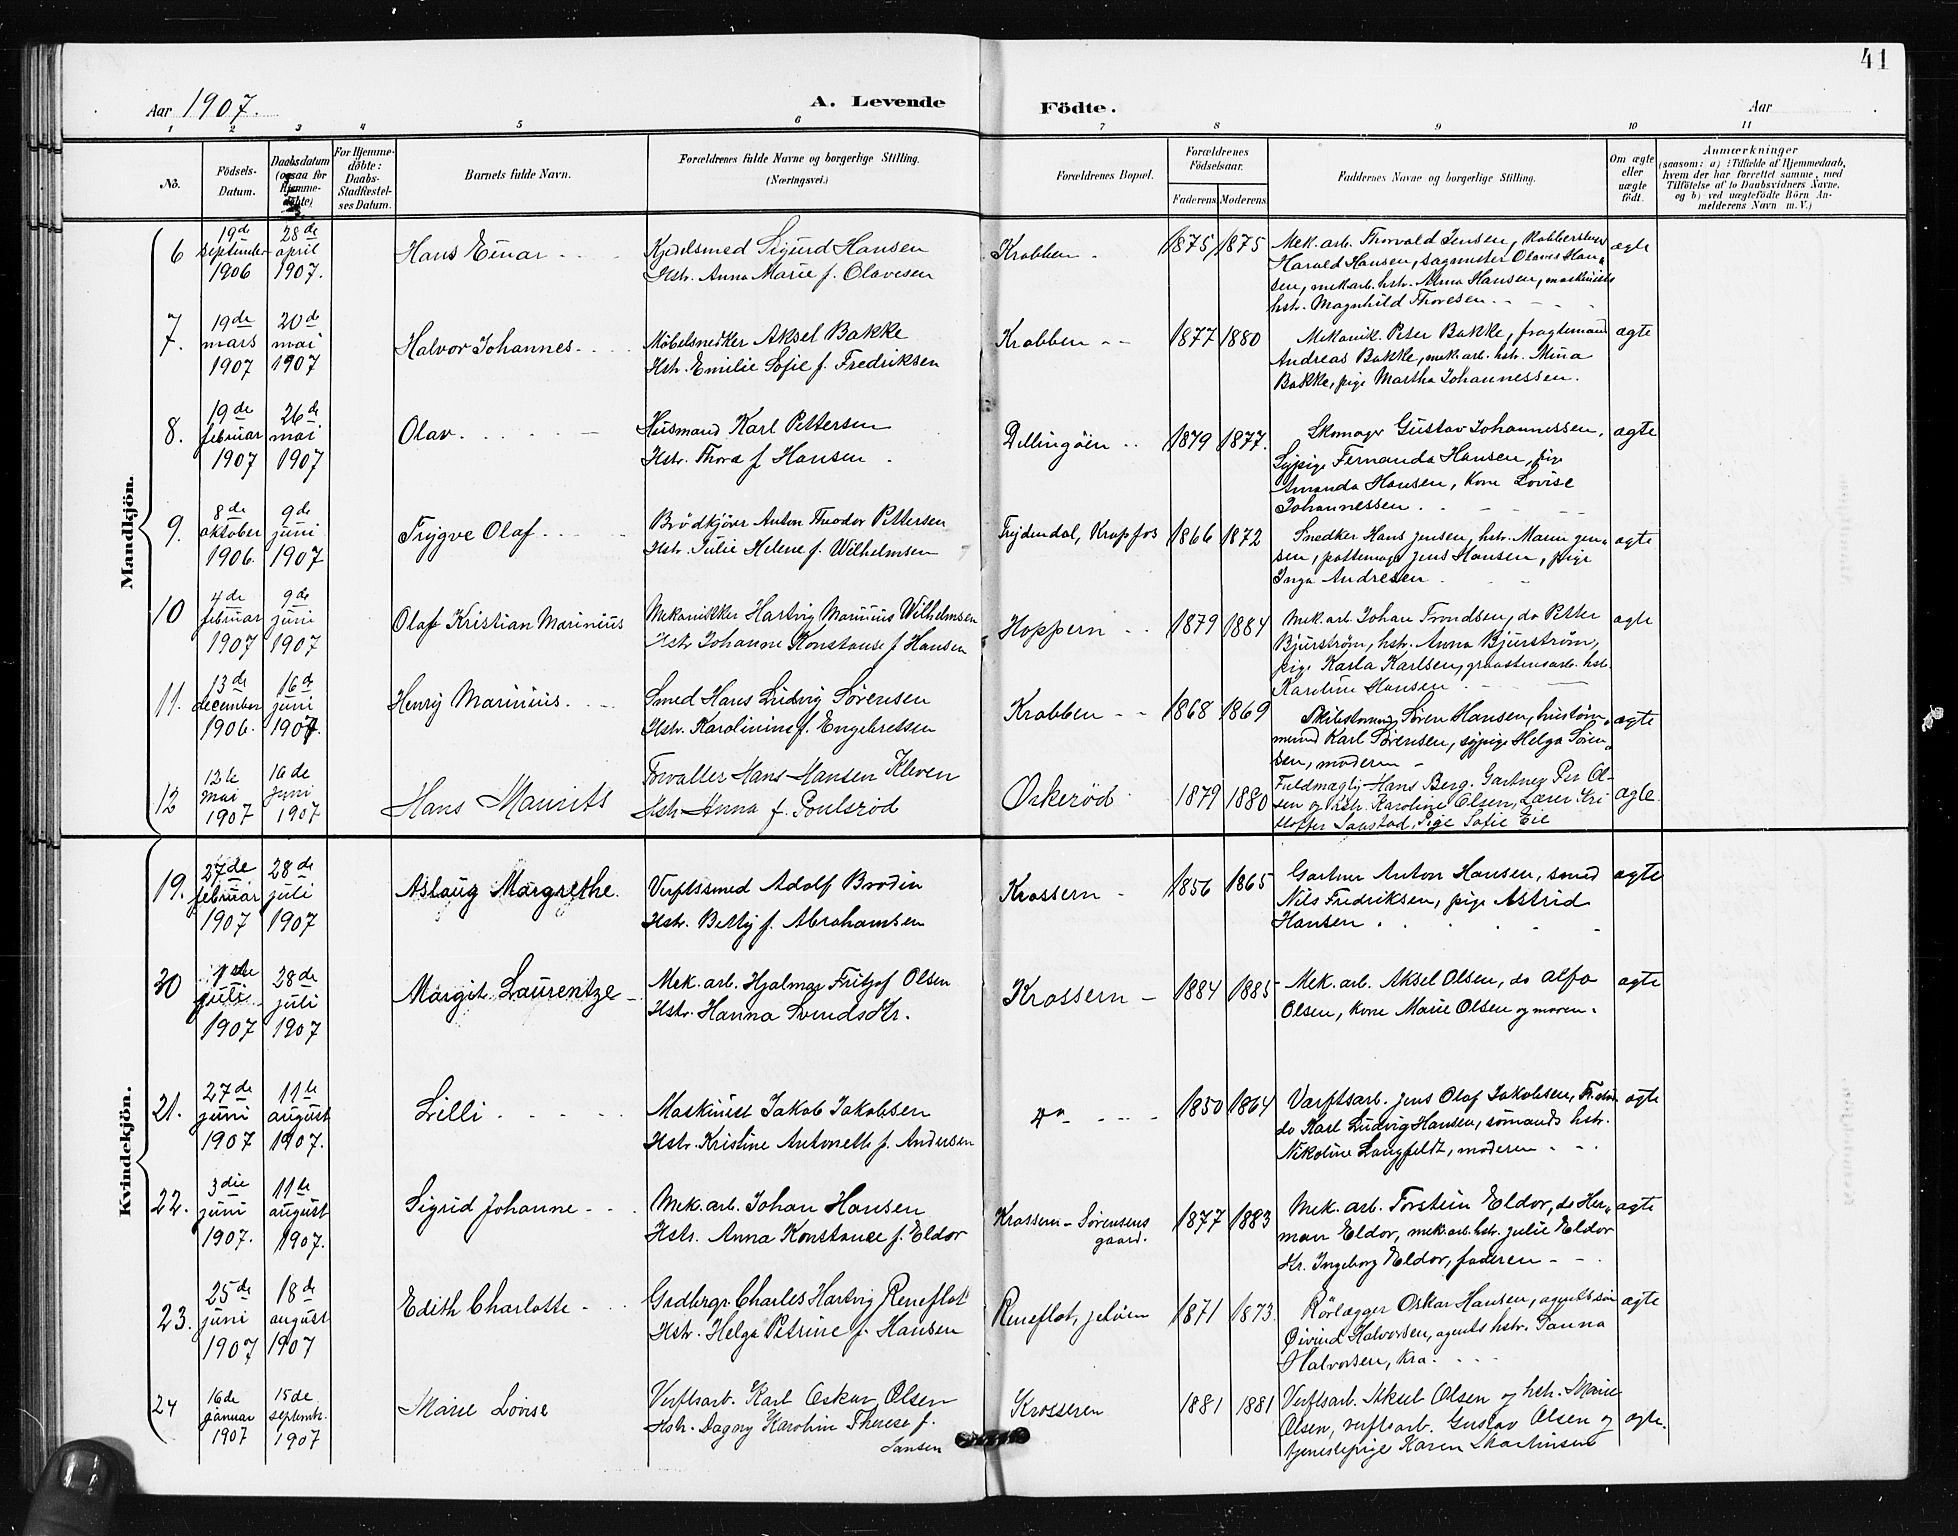 41
Aar 1907. A. Levende Födte. Aar
1 2 3 4 5 6 7 8 9 10 11
No. Födsels-Datum. Daabsdatum (ogsaa for Hjemme-døbte) For Hjemme-döbte: Daabs-Stadfæstel-ses Datum. Barnets fulde Navn. Forældrenes fulde Navne og borgerlige Stilling. (Næringsvei.) Forældrenes Bopæl. Forældrenes Födselsaar. Faderens Moderens Faddernes Navne og borgerlige Stilling. Om ægte eller uægte födt. Anmærkninger
(saasom: a) i Tilfælde af Hjemmedaab, hvem der har forrettet samme, med Tilföielse af to Daabsvidners Navne, og b) ved uægtefödte Börn An-melderens Navn m. V.)
Mandkjön.
6 19de september 1906 28de april 1907. Hans Einar
Kjedelsmed Sigurd Hansen
Hstr. Anna Marie f. Olavesen
Krabben 1875 1875
Mek. arb. Thorvald Jensen,
Harald Hansen, sagmester Olaves Han-
sen, mek. arb. hstr. Alma Hansen, maskinists
hstr. Magnhild Thoresen
ægte
7. 19de mars 1907 20de mai 1907 Halvor Johannes
Møbelsnedker Aksel Bakke
Hstr. Emilie Sofie f. Fredriksen
Krabben 1877 1880
Mekanik. Peter Bakke, fragtemand
Andreas Bakke, mek. arb. hstr. Mina
Bakke, pige Martha Johannessen.
ægte
8. 19de februar 1907 26de mai 1907 Olav
Husmand Karl Pettersen
Hstr. Thora f Hansen
Dillingöen 1879 1877.
Skomager Gustav Johannessen,
Sypige Fernanda Hansen, pige
Amanda Hansen, Kone Lovise
Johannessen
ægte
9. 8de oktober 1906. 9de juni 1907 Trygve Olaf
Brödkjörer Anton Theodor Pettersen
Hstr. Julie Helene f. Wilhelmsen
Frydendal, Krapfos 1866 1872
Snedker Hans Jensen, hstr. Marie Jen-
sen, pottemager Jens Hansen, pige
Inga Andresen
ægte
10 4de februar 1907 9de juni 1907 Olaf Kristian Marinius
Mekanikker Hartvig Marinius Wilhelmsen
Hstr Johanne Konstanse f Hansen
Hoppern 1879 1884
Mek. arb. Johan Trondsen, do Petter
Bjurström, hstr. Anna Bjurström,
pige Karla Karlsen, graastensarb. hstr.
Karoline Hansen
ægte
11. 13de december 1906. 16de juni 1907 Henry Marinius
Smed Hans Ludvig Sørensen
Hstr. Karolinine f. Engebretsen
Krabben 1868 1869
Skibstømmr. Søren Hansen, hustøm-
mmd Karl Sørensen, sypige Helga Søren-
sen, moderen
ægte
12 12te mai 1907 16de juni 1907 Hans Maurits
Forvalter Hans Hansen Kleven
Hstr Anna f. Poulsrød
Orkerød 1879 1880
Fuldmægtig Hans Berg. Gartner Per Ol-
sen og hstr. Karoline Olsen, Lærer Kri
stoffer Sanstad, Pige Sofie Eie
ægte.
Kvindekjön.
19. 27de februar 1907 28de juli 1907 Aslaug Margrethe
Verftssmed Adolf Brodin
Hstr. Betty f. Abrahamsen
Krossern 1856 1865
Gartner Anton Hansen, smed
Nils Fredriksen, pige Astrid
Hansen
ægte
20 1ste juli 1907 28de juli 1907 Margit Laurentze
Mek. arb. Hjalmar Fritjof Olsen
Hstr. Hanna Svends Kr.
Krossern 1884 1885
Mek. arb. Aksel Olsen, do Alfa
Olsen, kone Marie Olsen og moren.
ægte
21. 27de juni 1907 11te august 1907. Lilli
Maskinist Jakob Jakobsen
Hstr. Kristine Antonette f. Andersen
do 1850 1864
Værftsarb. Jens Olaf Jakobsen,
do Karl Ludvig Hansen, sømands hstr.
Nikoline Langfeldt, moderen
ægte
22. 3die juni 1907. 11te august 1907. Sigrid Johanne
Mek. arb. Johan Hansen
Hstr. Anna Konstance f. Eldor
Krossern - Sørensens
gaard.
1877 1883
Mek. arb. Torstein Eldor, do Her-
man Eldor, mek. arb. hstr. Julie Eldor
Kr. Ingeborg Eldor, faderen
ægte
23. 25de juni 1907 18de august 1907 Edith Charlotte
Gadbrgr. Charles Hartvig Reneflot
Hstr. Helga Petrine f. Hansen
Reneflot, jeløen 1871 1873.
Rörlægger Oskar Hansen, agents søn
Øivind Halvorsen, agents hstr. Sanna
Halvorsen, Kra.
ægte
24 16de januar 1907 15de septembr. 1907 Marie Lovise
Verftsarb. Karl Oskar Olsen
Hstr. Dagny Karolin Therese f.
Jansen
Krosseren 1881 1881
Verftsarb. Aksel Olsen og hstr. Marie
Olsen, verftsarb. Gustav Olsen og
tjenestepige Karen Martinsen
ægte.